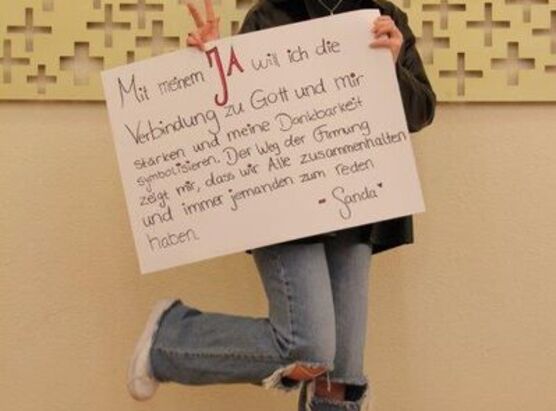 Mit meinem JA will ich die
Verbindung zu Gott und mir
stärken und meine Dankbarkeit
symbolisieren. Der Weg der Firmung
zeigt mir, dass wir Alle zusammenhalten
und immer jemanden zum reden
haben.
- Sanda